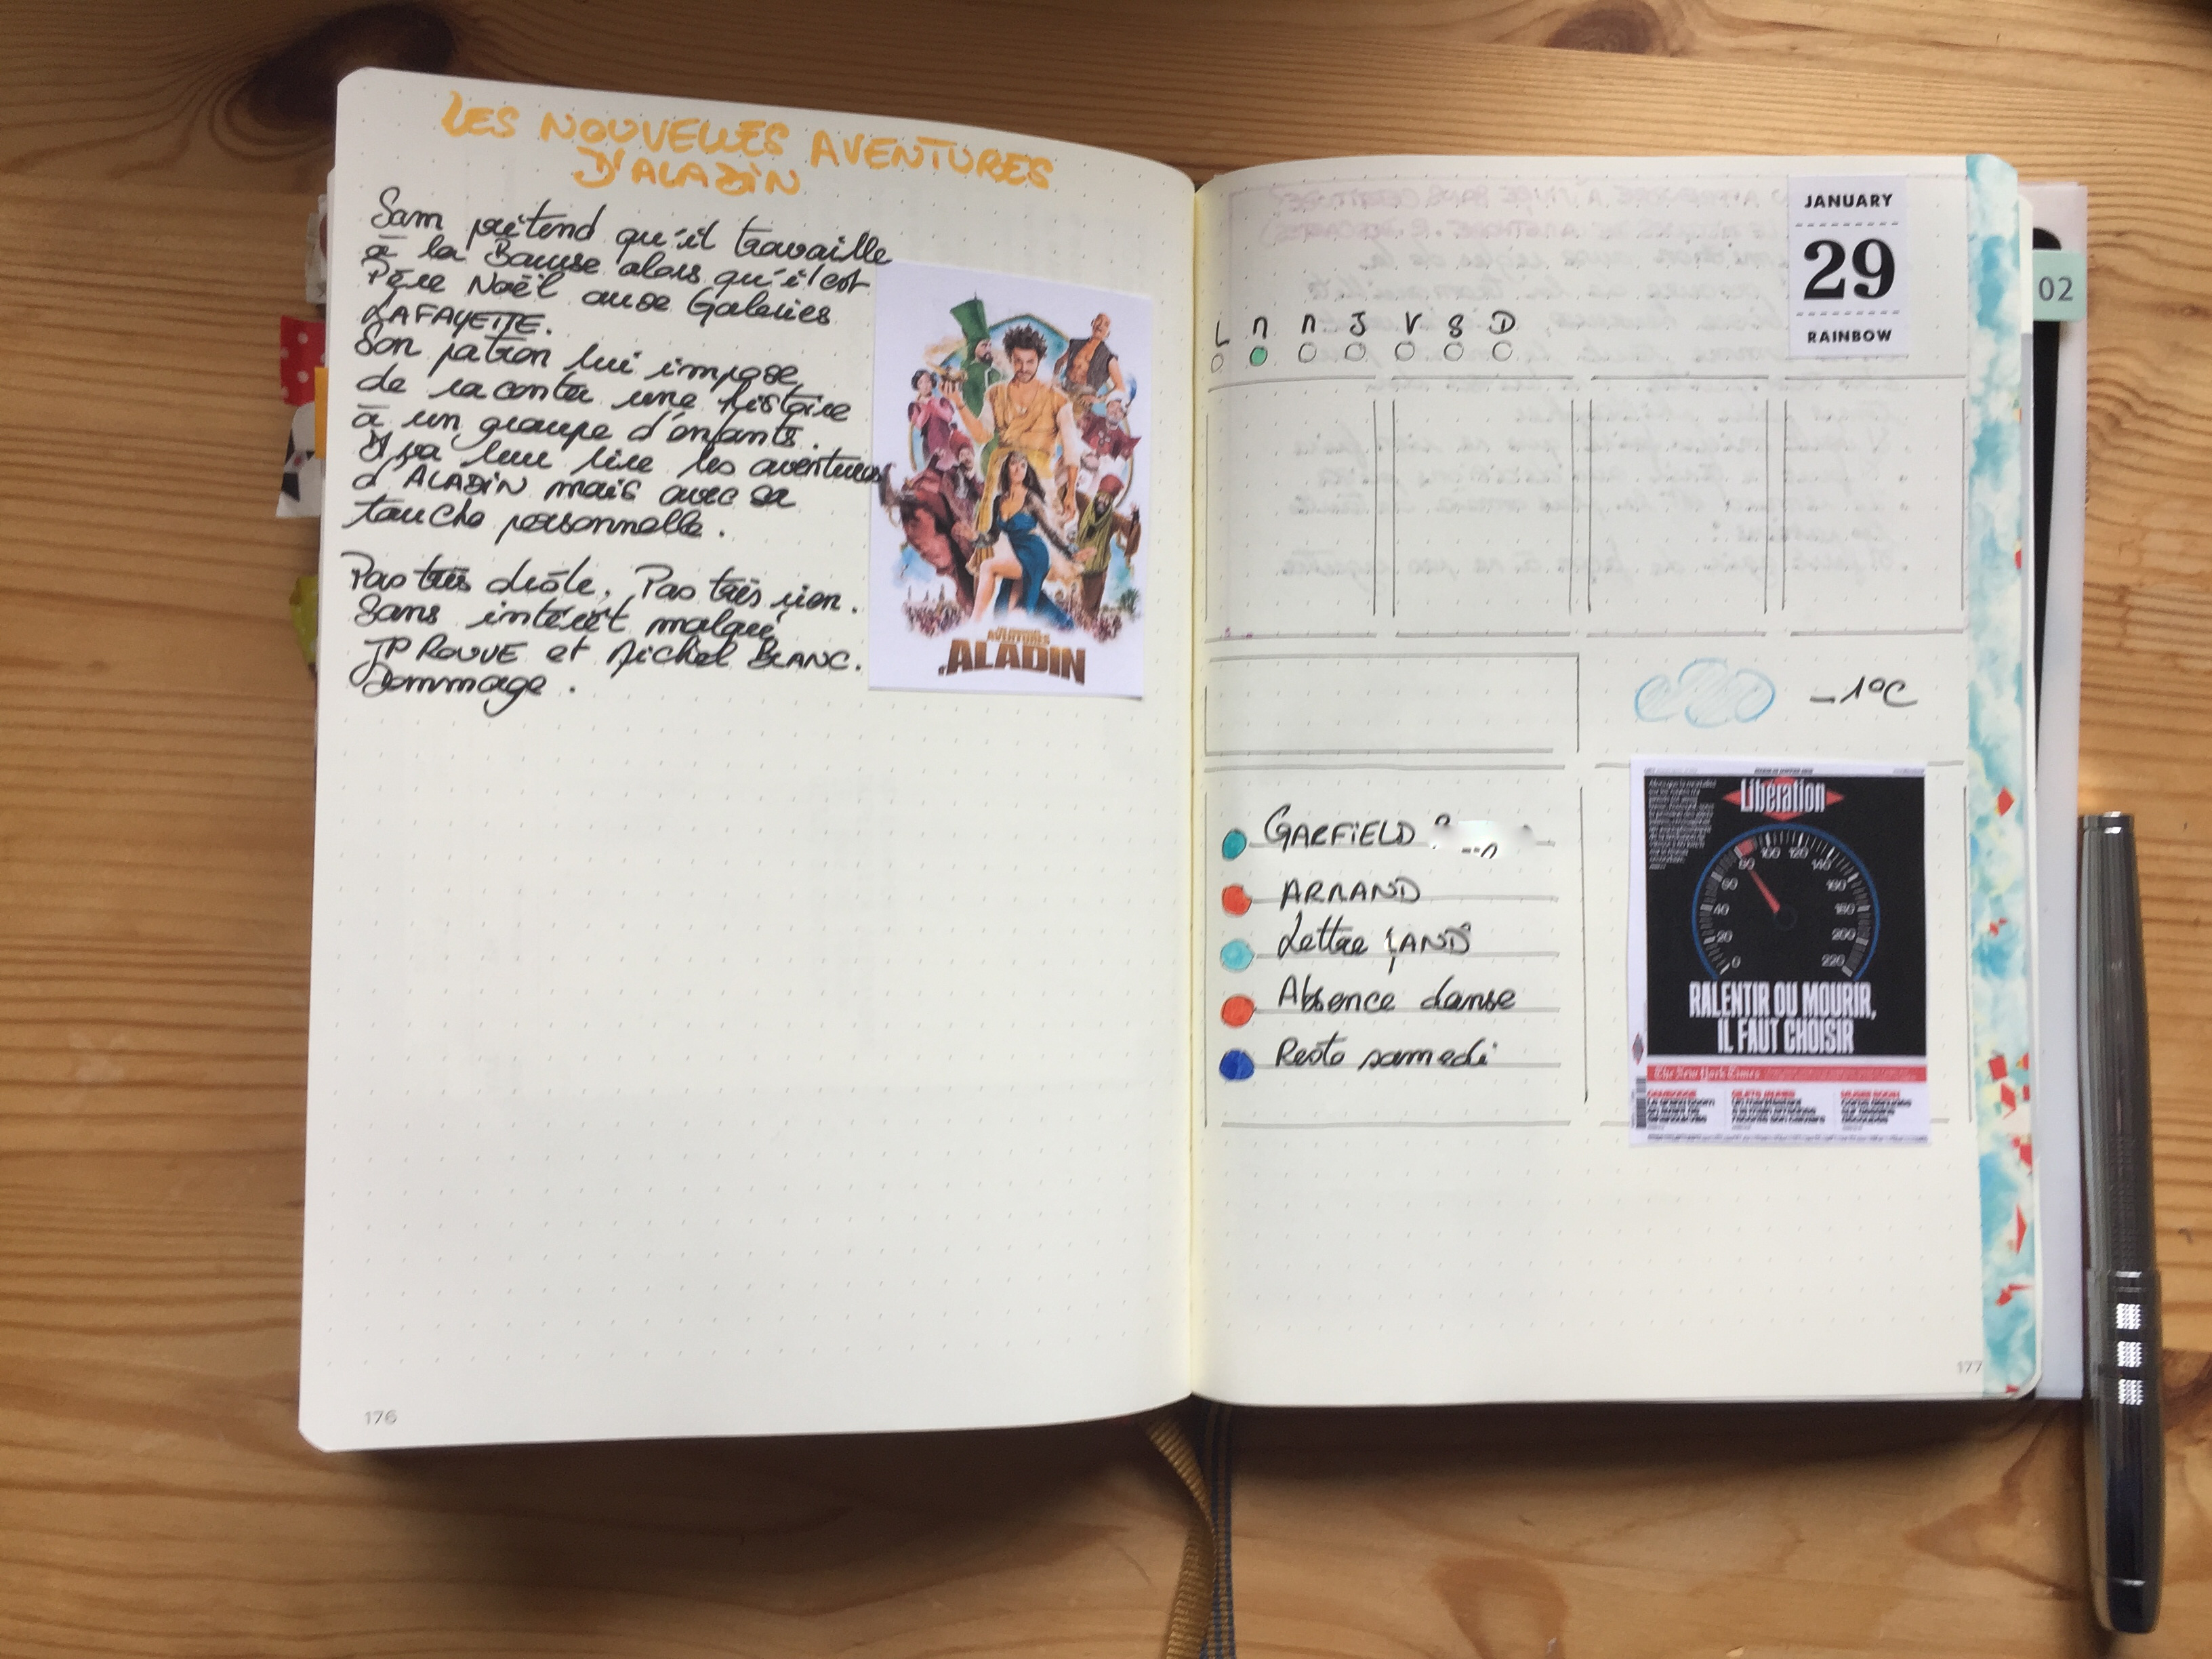 LES NOUVELLES AVENTURES
D'ALADIN
Sam prétend qu'il travaille
à la Bourse alors qu'il est
Père Noël aux Galeries
LAFAYETTE.
Son patron lui impose
de raconter une histoire
à un groupe d'enfants.
Il va leur lire les aventures
d'ALADIN mais avec sa
touche personnelle.
Pas très drôle. Pas très rien.
Sans intérêt malgré
JP ROUVE et Michel BLANC.
Dommage.
AVENTURES
ALADIN
176
JANUARY
29
RAINBOW
02
L M M J V S D
-1°C
GARFIELD
ARMAND
Lettre LAND
Absence danse
Resto samedi
Libération
0 20 40 60 80 100 120 140 160 180 200 220
RALENTIR OU MOURIR,
IL FAUT CHOISIR
The New York Times
177